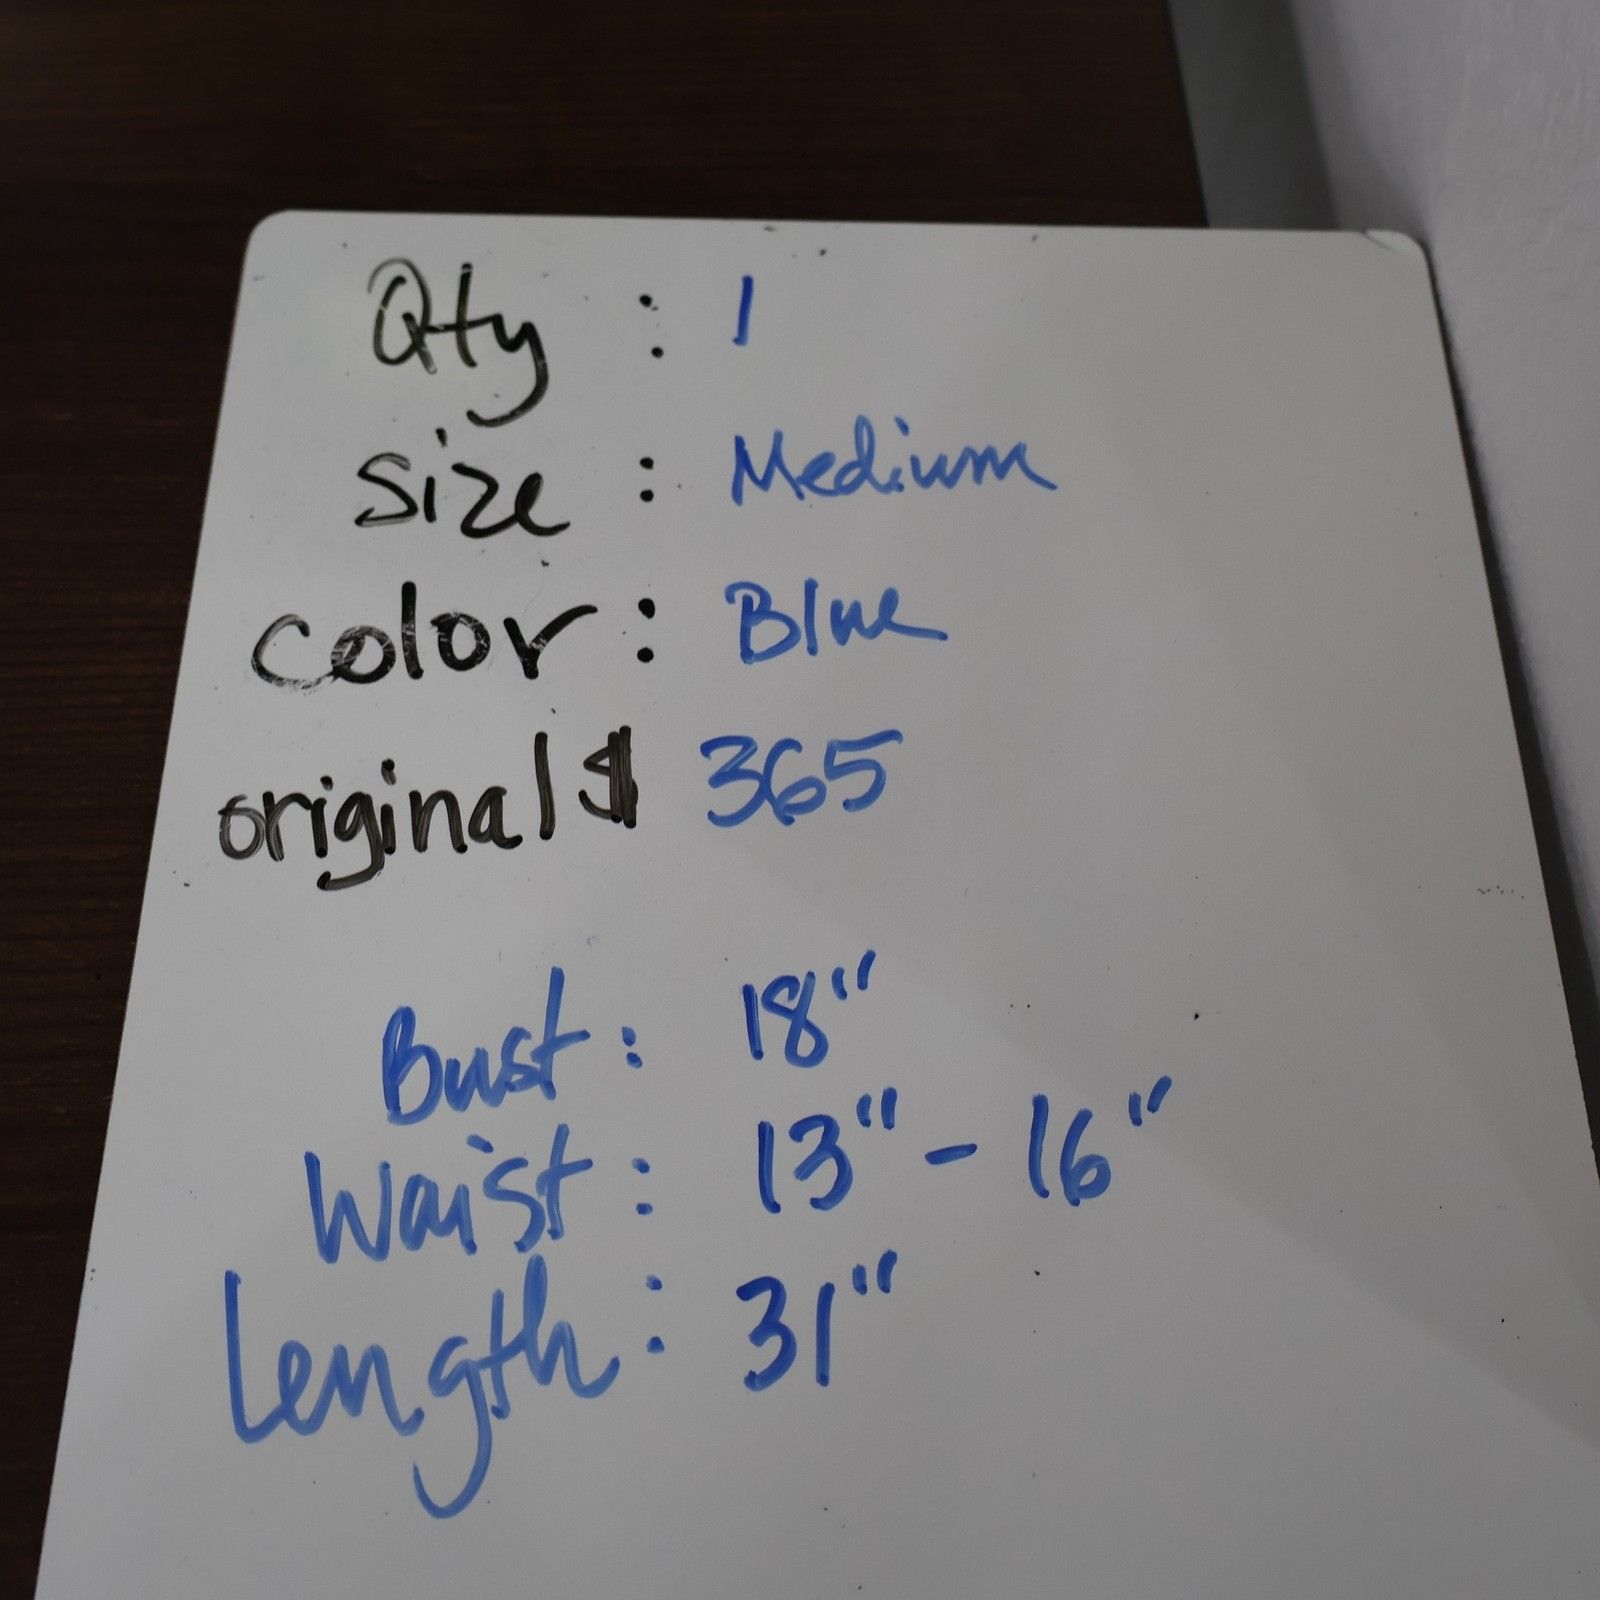 Qty : 1
Size : Medium
Color : Blue
original $ 365
Bust : 18"
Waist : 13" - 16"
Length : 31"